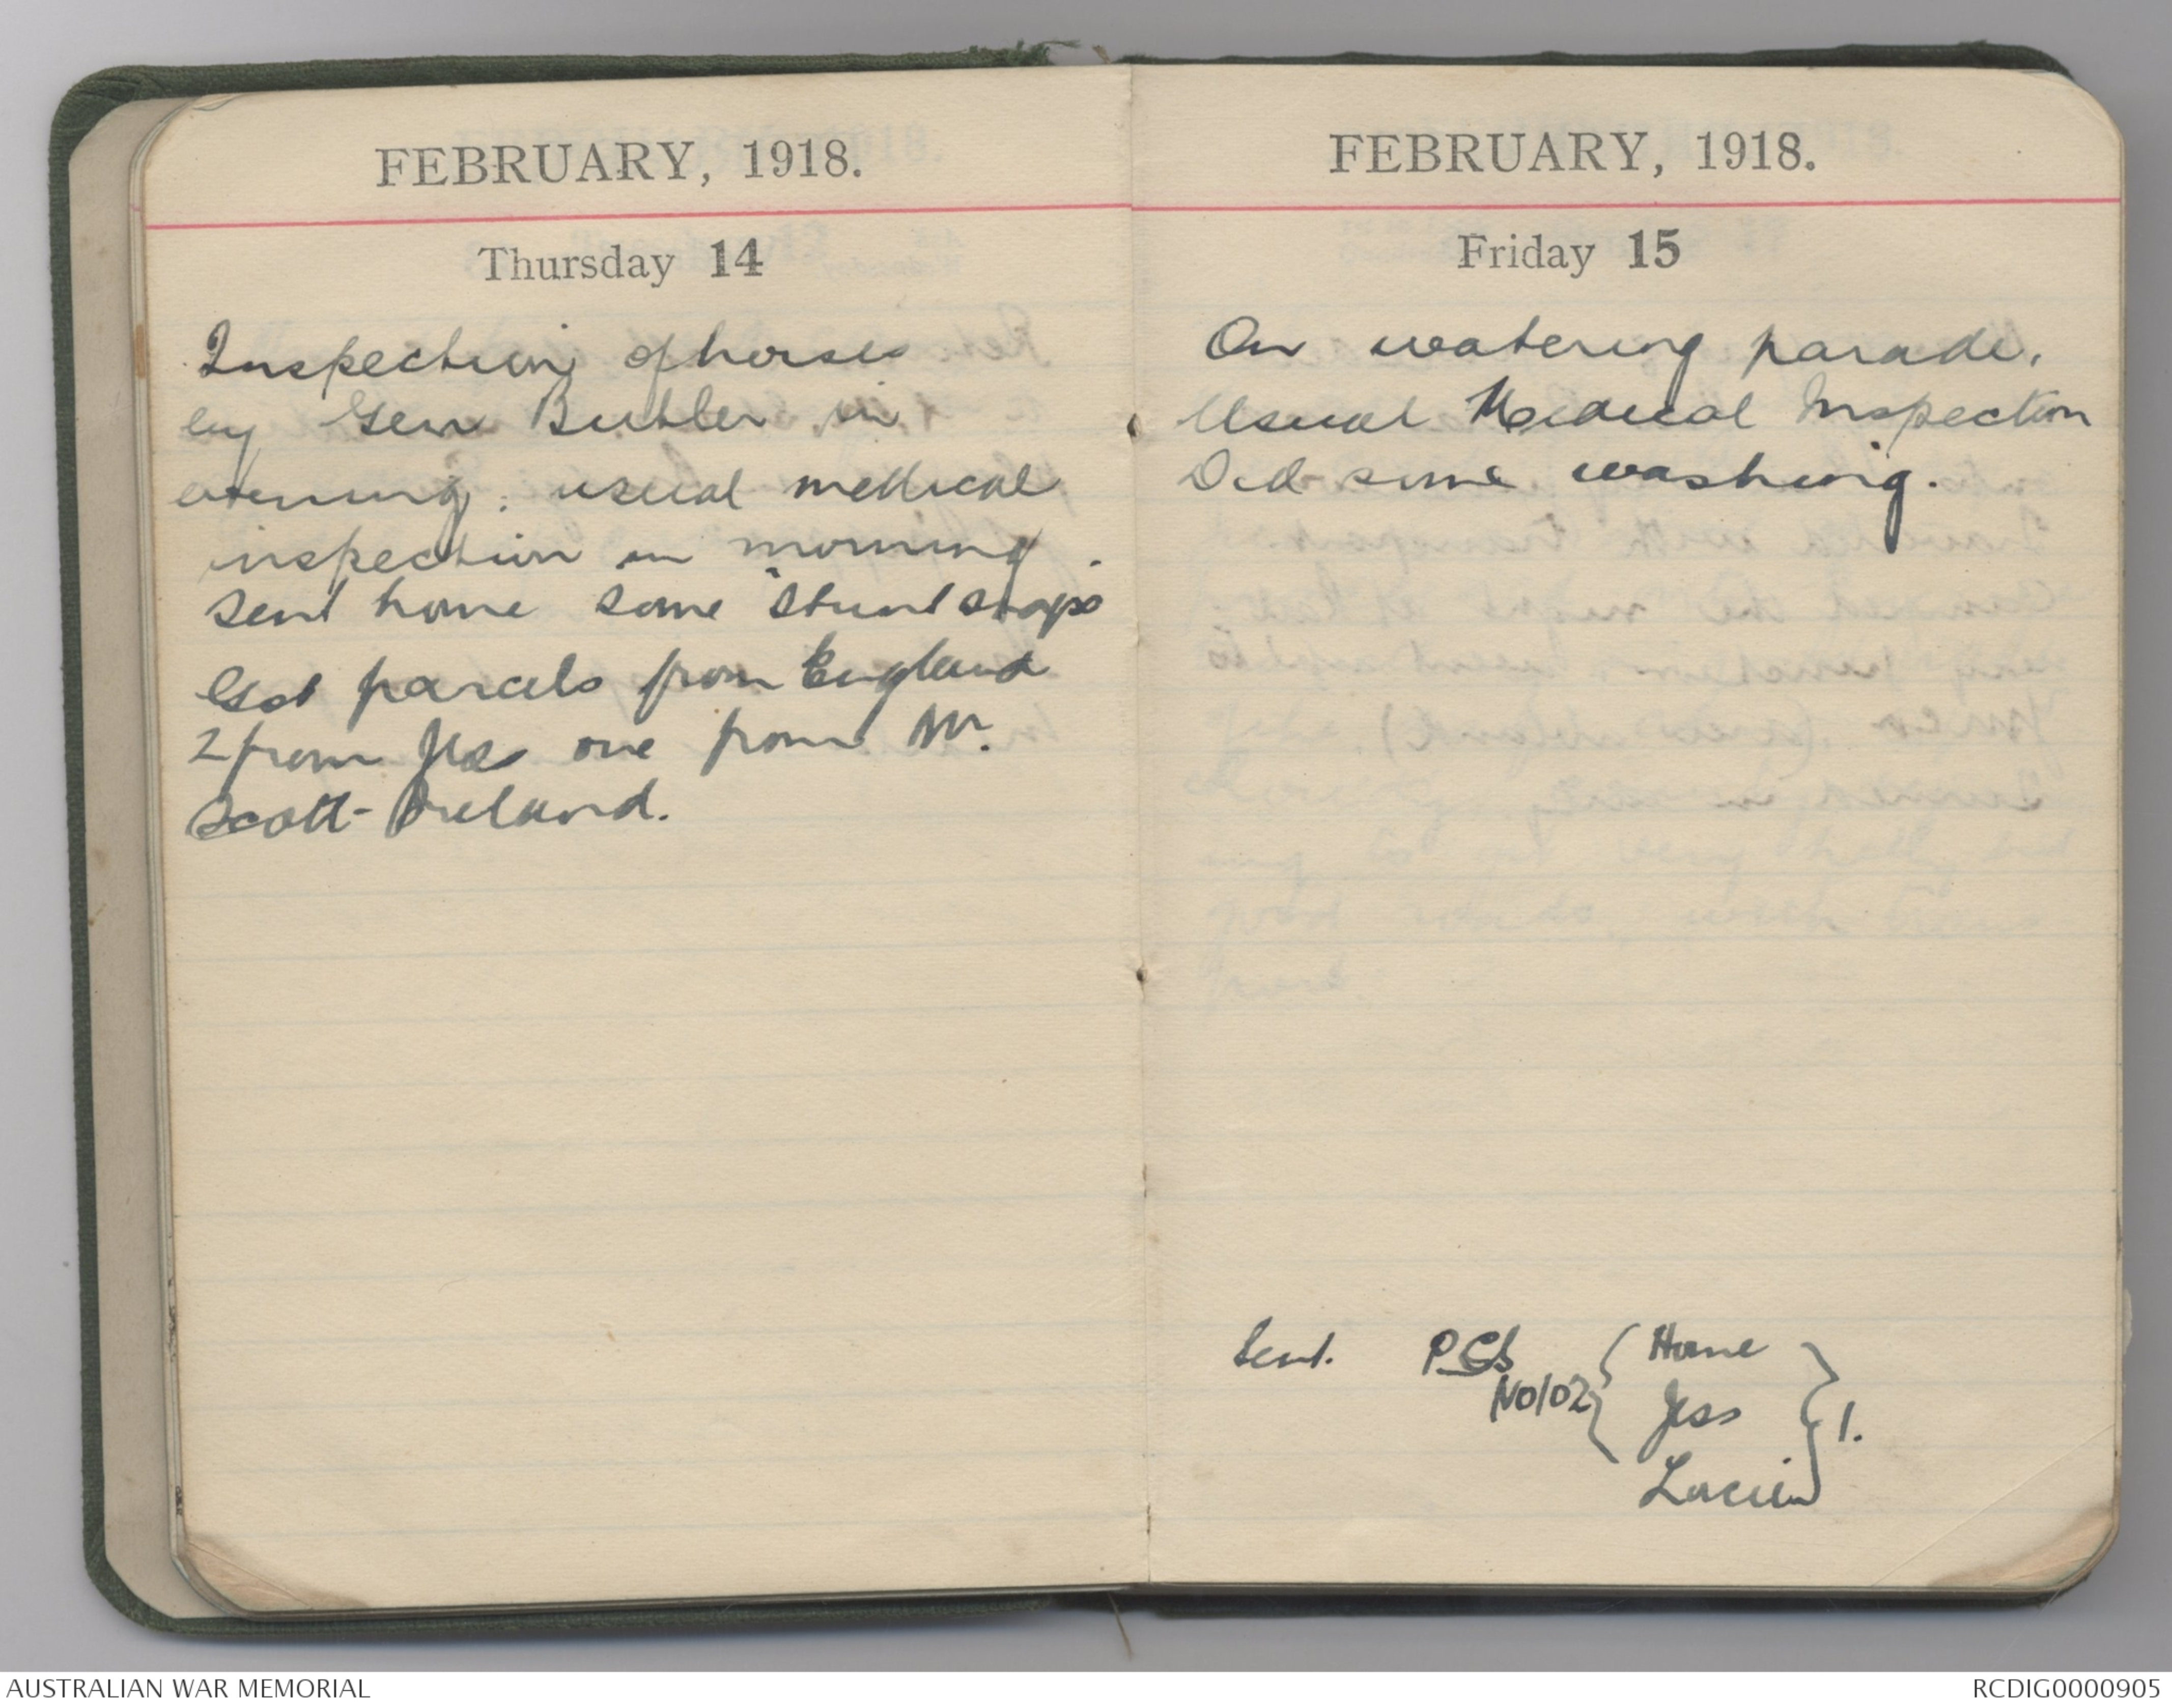 FEBRUARY, 1918.
Thursday 14
Inspection of horses
by Gen Butler in
evening. usual medical
inspection in morning.
Sent home some "Stunt snaps
Got parcels from England
2 from Jess one from Mr.
Scott-Ireland.
FEBRUARY, 1918.
Friday 15
On watering parade.
Usual Medical Inspection
Did some washing.
Sent. PCs { Home }
No 102 { Jess } 1.
Lucien
AUSTRALIAN WAR MEMORIAL
RCDIG0000905